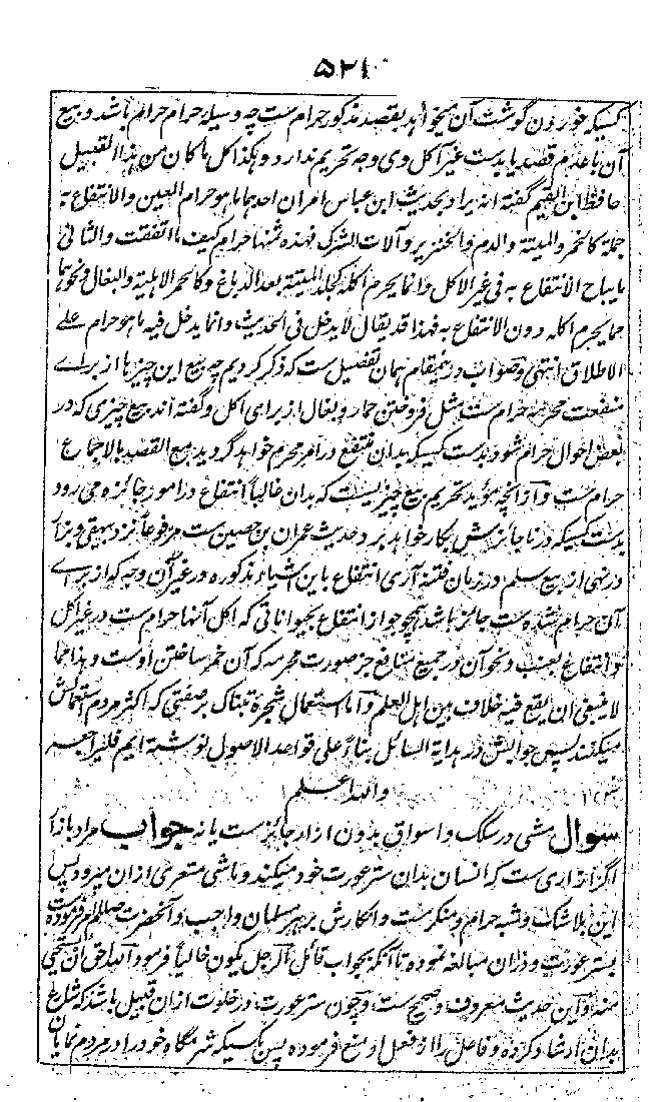 ۵۲۱
کسیکہ خوردن گوشت آن میخواہد بقصد مذکور حرام ست چہ وسیلۂ حرام حرام باشد و بیع
آن با عدم قصد یا بدست غیر آکل وی وجہ تحریم ندارد و ہکذا کل ما کان من ہذا القبیل
حافظ ابن القیم گفتہ انہ یراد بحدیث ابن عباس امران احدہما ما ہو حرام العین والانتفاع بہ
جملۃ کالخمر والمیتۃ والدم والخنزیر وآلات الشرک فہذہ ثمنہا حرام کیف ما اتفقت والثانی
ما یباح الانتفاع بہ فی غیر الاکل وانما یحرم اکلہ کجلد المیتۃ بعد الدباغ وکالحمر الاہلیۃ والبغال ونحوہا
مما یحرم اکلہ دون الانتفاع بہ فہذا قد یقال لا یدخل فی الحدیث وانما یدخل فیہ ما ہو حرام علے
الاطلاق انتہی وصواب درینمقام ہمان تفصیل ست کہ ذکر کردیم چہ بیع این چیزہا از براے
منفعت محرمہ حرام ست مثل فروختن حمار و بغال از برای اکل و گفتہ اند بیع چیزی کہ در
بعض احوال حرام شود بدست کسیکہ بدان منتفع در امر محرم خواہد گردید مع القصد بالاجماع
حرام ست و از آنچہ مؤید تحریم بیع چیزیست کہ بدان غالباً انتفاع در امور جائزہ می رود
بدست کسیکہ در ناجائزش بکار خواہد برد حدیث عمران بن حصین ست مرفوعاً نزد بیہقی و بزار
در نہی از بیع سلم در زمان فتنہ آری انتفاع باین اشیاء مذکورہ در غیر آن وجہ کہ از براے
آن حرام شدہ ست جائز باشد ہمچو جواز انتفاع بحیواناتی کہ اکل آنہا حرام ست در غیر اکل
و انتفاع بعنب و نحو آن در جمیع منافع جز صورت محرمہ کہ آن خمر ساختن اوست وہذا مما
لا ینبغی ان یقع فیہ خلاف بین اہل العلم و اما استعمال شجرۂ تنباک بر صفتی کہ اکثر مردم استعمالش
میکنند پس جوابش در ہدایۃ السائل بناءً علی قواعد الاصول نوشتہ ایم فلیراجعہ
واللہ اعلم
سوال مشی در سکک و اسواق بدون ازار جائزست یا نہ جواب مراد بازار
اگر ازاری ست کہ انسان بدان ستر عورت خود میکند و ماشی متعری ازان میرود پس
این بلاشک و شبہ حرام و منکرست و انکارش بر ہر مسلمان واجب و آنحضرت صللم امر فرمودہ
بستر عورت و دران مبالغہ نمودہ تا آنکہ بجواب قائل الرجل یکون خالیاً فرمود اللہ احق ان یستحیی
منہ و این حدیث معروف و صحیح ست و چون ستر عورت در خلوت ازان قبیل باشد کہ شارع
بدان ارشاد کردہ و فاعل را از فعل او منع فرمودہ پس کسیکہ شرمگاہ خود را در مردم نمایان